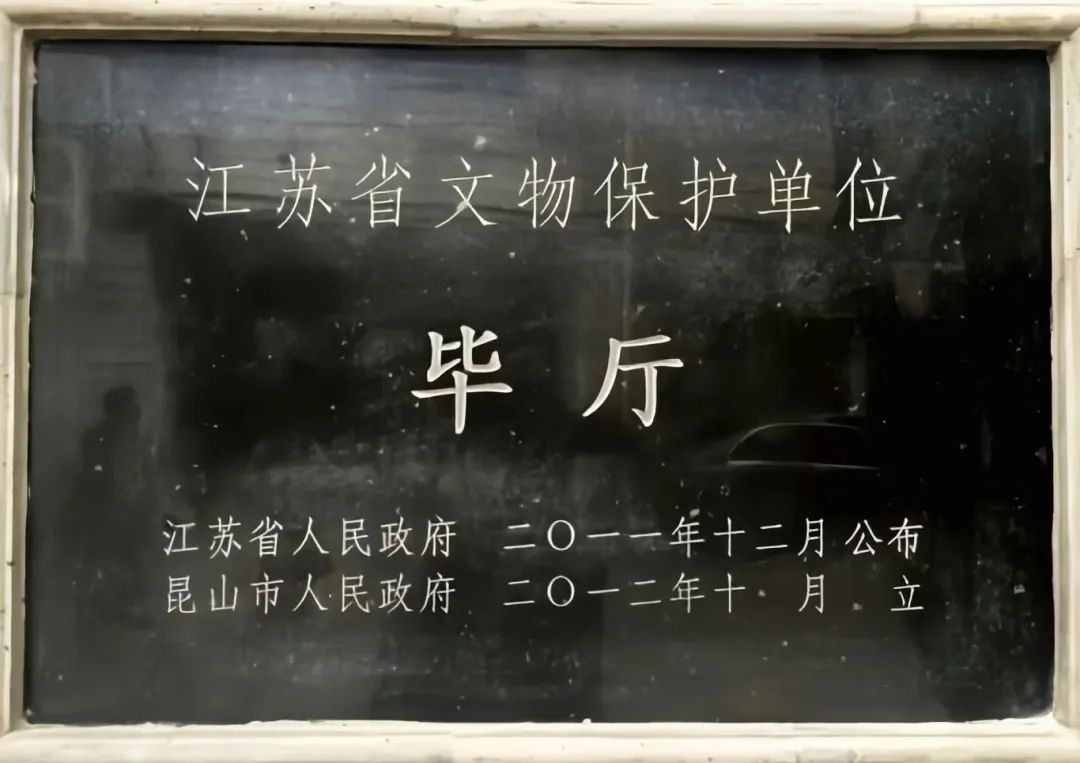 江苏省文物保护单位
毕厅
江苏省人民政府 二〇一一年十二月公布
昆山市人民政府 二〇一二年十 月 立